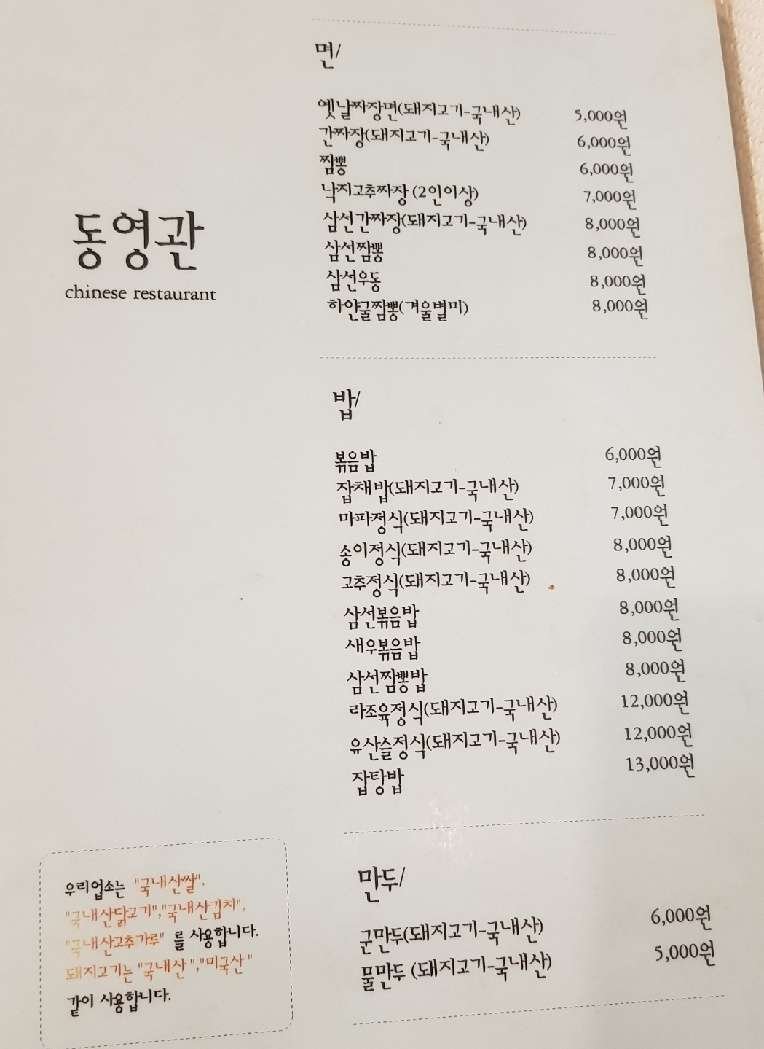 동영관
chinese restaurant
면/
옛날짜장면(돼지고기-국내산) 5,000원
간짜장(돼지고기-국내산) 6,000원
짬뽕 6,000원
낙지고추짜장 (2인이상) 7,000원
삼선간짜장(돼지고기-국내산) 8,000원
삼선짬뽕 8,000원
삼선우동 8,000원
하얀굴짬뽕(겨울별미) 8,000원
밥/
볶음밥 6,000원
잡채밥(돼지고기-국내산) 7,000원
마파정식(돼지고기-국내산) 7,000원
송이정식(돼지고기-국내산) 8,000원
고추정식(돼지고기-국내산) 8,000원
삼선볶음밥 8,000원
새우볶음밥 8,000원
삼선짬뽕밥 8,000원
라조육정식(돼지고기-국내산) 12,000원
유산슬정식(돼지고기-국내산) 12,000원
잡탕밥 13,000원
만두/
군만두(돼지고기-국내산) 6,000원
물만두 (돼지고기-국내산) 5,000원
우리업소는 "국내산쌀",
"국내산닭고기","국내산김치",
"국내산고추가루" 를 사용합니다.
돼지고기는 "국내산 ","미국산 "
같이 사용합니다.